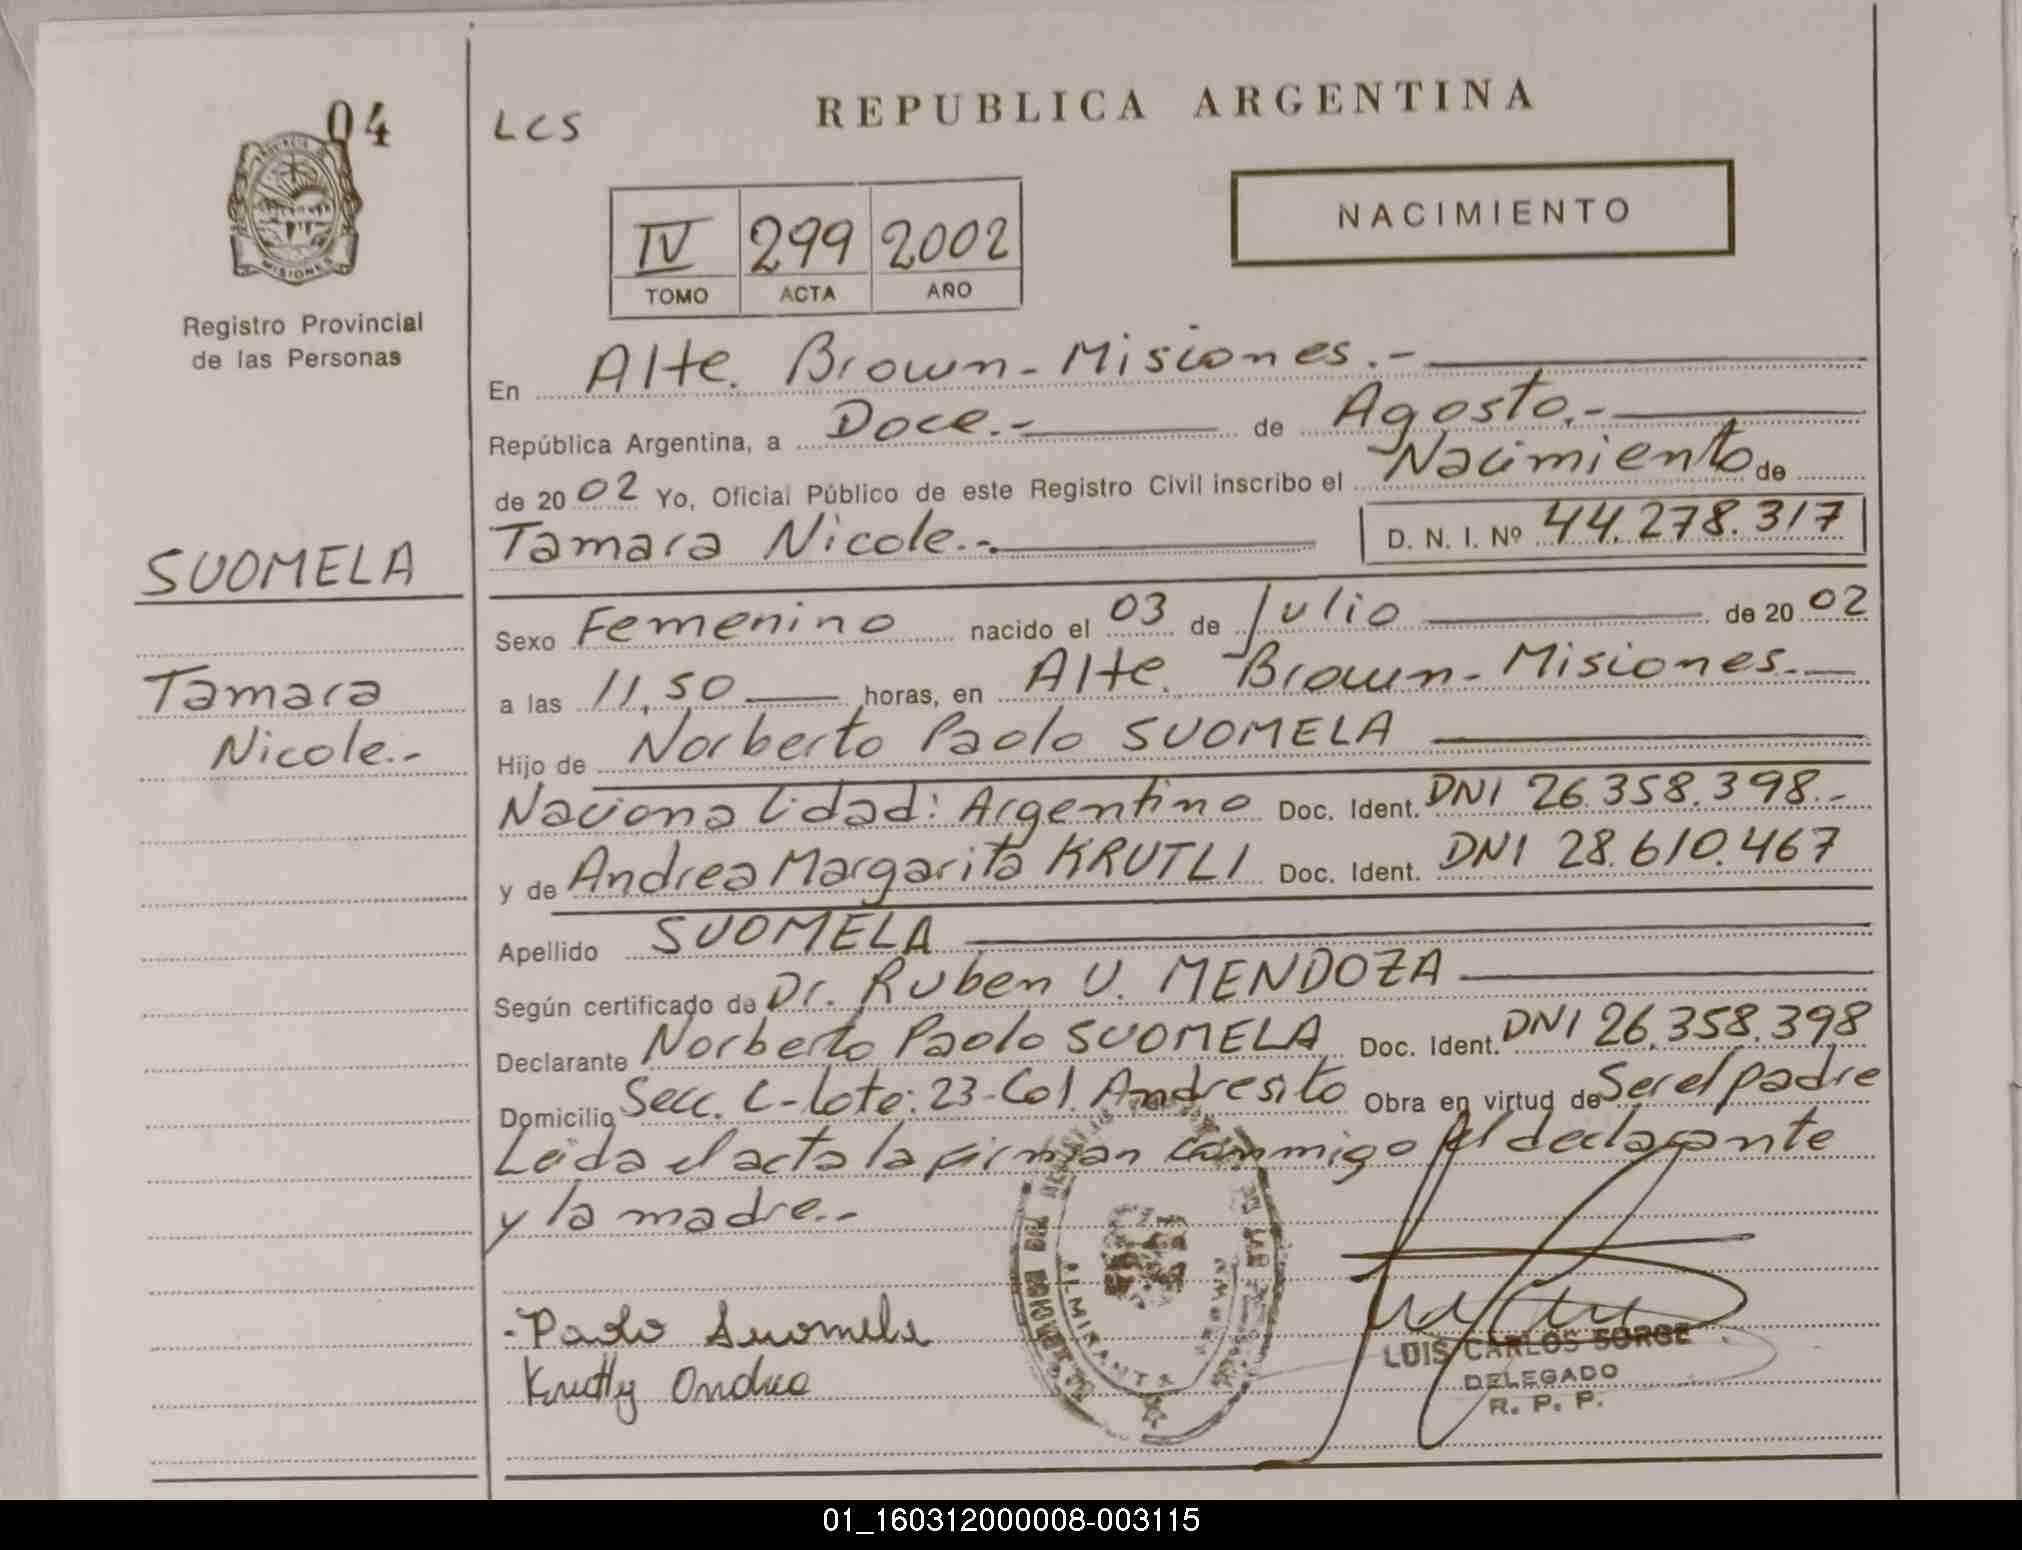 04
LCS
REPUBLICA ARGENTINA
PROVINCIA DE
MISIONES
IV 299 2002
TOMO ACTA AÑO
NACIMIENTO
Registro Provincial
de las Personas
En Alte. Brown - Misiones.-
República Argentina, a Doce.- de Agosto.-
de 2002 Yo, Oficial Público de este Registro Civil inscribo el Nacimiento de
Tamara Nicole.-. D. N. I. Nº 44.278.317
SUOMELA
Tamara
Nicole.-
Sexo Femenino nacido el 03 de Julio de 2002
a las 11,50 horas, en Alte. Brown - Misiones.-
Hijo de Norberto Paolo SUOMELA
Nacionalidad: Argentino Doc. Ident. DNI 26.358.398.-
y de Andrea Margarita KRUTLI Doc. Ident. DNI 28.610.467
Apellido SUOMELA
Según certificado de Dr. Ruben U. MENDOZA
Declarante Norberto Paolo SUOMELA Doc. Ident. DNI 26.358.398
Domicilio Secc. C - Lote: 23 - Col. Andresito Obra en virtud de Ser el padre
Leida el acta la firman conmigo el declarante
y la madre.-
ALMIRANTE BROWN
- Paolo Suomela
Krutly Andrea
LUIS CARLOS SORGE
DELEGADO
R. P. P.
01_160312000008-003115